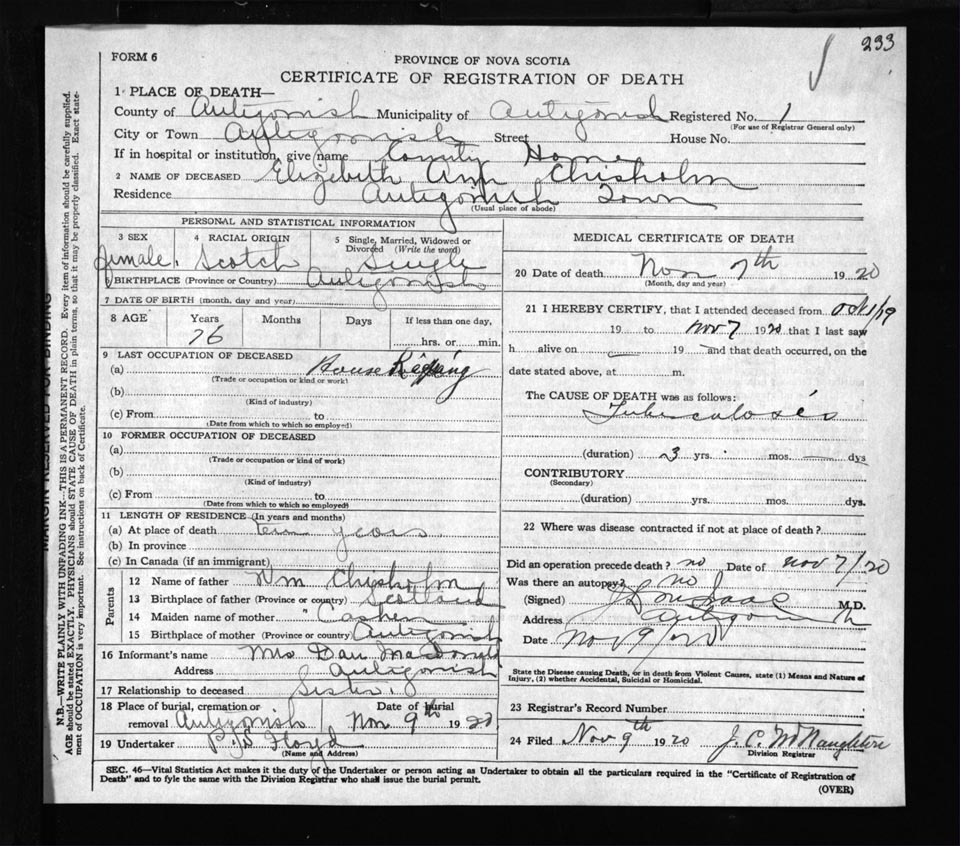 233
FORM 6
PROVINCE OF NOVA SCOTIA
CERTIFICATE OF REGISTRATION OF DEATH
1 PLACE OF DEATH—
County of Antigonish Municipality of Antigonish Registered No. 1
(For use of Registrar General only)
City or Town Antigonish Street House No.
If in hospital or institution, give name County Home
2 NAME OF DECEASED Elizabeth Ann Chisholm
Residence Antigonish Town
(Usual place of abode)
PERSONAL AND STATISTICAL INFORMATION
3 SEX 4 RACIAL ORIGIN 5 Single, Married, Widowed or Divorced (Write the word)
female. Scotch Single
6 BIRTHPLACE (Province or Country) Antigonish
7 DATE OF BIRTH (month, day and year)
8 AGE Years Months Days If less than one day,
76 hrs. or min.
9 LAST OCCUPATION OF DECEASED
(a) House Keeping
(Trade or occupation or kind or work)
(b)
(Kind of industry)
(c) From to
(Date from which to which so employed)
10 FORMER OCCUPATION OF DECEASED
(a)
(Trade or occupation or kind of work)
(b)
(Kind of industry)
(c) From to
(Date from which to which so employed)
11 LENGTH OF RESIDENCE (In years and months)
(a) At place of death ten years.
(b) In province
(c) In Canada (if an immigrant)
Parents
12 Name of father Wm Chisholm
13 Birthplace of father (Province or country) Scotland
14 Maiden name of mother "
15 Birthplace of mother (Province or country) Antigonish
16 Informant's name Mrs Dan MacDonald
Address Antigonish
17 Relationship to deceased Sister.
18 Place of burial, cremation or removal Antigonish Date of burial Nov 9th 1920
19 Undertaker P.S. Floyd
(Name and Address)
MEDICAL CERTIFICATE OF DEATH
20 Date of death Nov 7th 1920
(Month, day and year)
21 I HEREBY CERTIFY, that I attended deceased from Oct 1/19
19 to Nov 7 1920 that I last saw
h alive on 19 and that death occurred, on the
date stated above, at m.
The CAUSE OF DEATH was as follows:
Tuberculosis
(duration) 3 yrs. mos. dys
CONTRIBUTORY
(Secondary)
(duration) yrs. mos. dys.
22 Where was disease contracted if not at place of death?
Did an operation precede death? no Date of Nov 7/20
Was there an autopsy? no
(Signed) M.D.
Address Antigonish
Date Nov 9/20
State the Disease causing Death, or in death from Violent Causes, state (1) Means and Nature of
Injury, (2) whether Accidental, Suicidal or Homicidal.
23 Registrar's Record Number
24 Filed Nov 9th 1920 J. C. McNaughton
Division Registrar
SEC. 46—Vital Statistics Act makes it the duty of the Undertaker or person acting as Undertaker to obtain all the particulars required in the "Certificate of Registration of
Death" and to fyle the same with the Division Registrar who shall issue the burial permit.
(OVER)
MARGIN RESERVED FOR BINDING
N.B.—WRITE PLAINLY WITH UNFADING INK—THIS IS A PERMANENT RECORD. Every item of information should be carefully supplied.
AGE should be stated EXACTLY. PHYSICIANS should STATE CAUSE OF DEATH in plain terms, so that it may be properly classified. Exact state-
ment of OCCUPATION is very important. See instructions on back of Certificate.